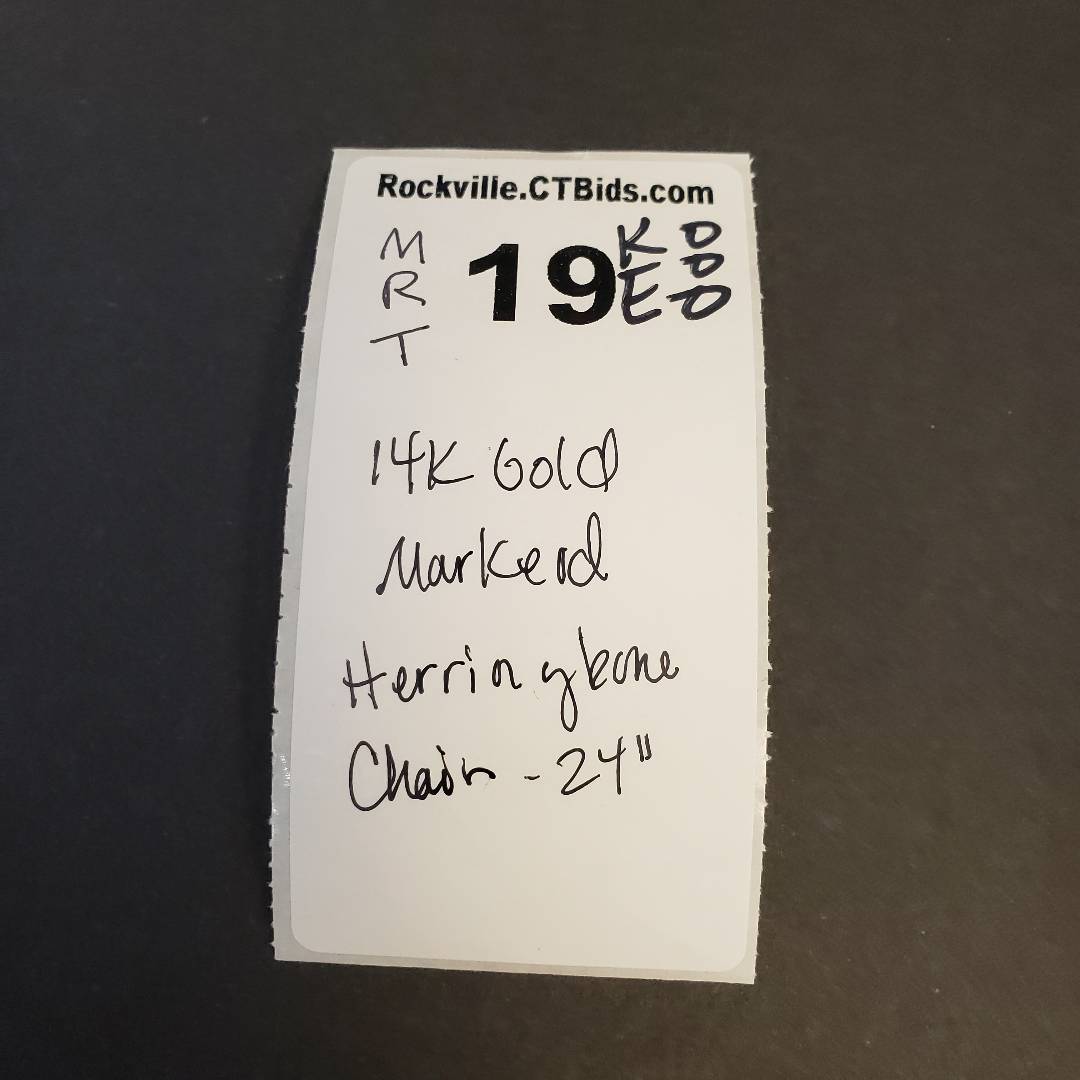 Rockville.CTBids.com
M
R
T
19
K D
E D
O
14K Gold
Markerd
Herringbone
Chain - 24"